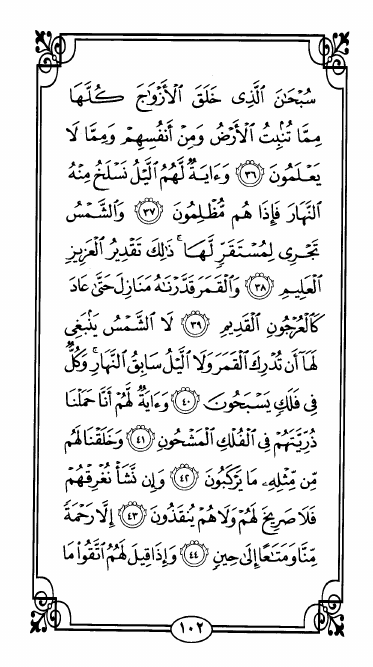 سُبْحَٰنَ ٱلَّذِى خَلَقَ ٱلْأَزْوَٰجَ كُلَّهَا
مِمَّا تُنۢبِتُ ٱلْأَرْضُ وَمِنْ أَنفُسِهِمْ وَمِمَّا لَا
يَعْلَمُونَ ٣٦ وَءَايَةٌ لَّهُمُ ٱلَّيْلُ نَسْلَخُ مِنْهُ
ٱلنَّهَارَ فَإِذَا هُم مُّظْلِمُونَ ٣٧ وَٱلشَّمْسُ
تَجْرِى لِمُسْتَقَرٍّ لَّهَا ۚ ذَٰلِكَ تَقْدِيرُ ٱلْعَزِيزِ
ٱلْعَلِيمِ ٣٨ وَٱلْقَمَرَ قَدَّرْنَٰهُ مَنَازِلَ حَتَّىٰ عَادَ
كَٱلْعُرْجُونِ ٱلْقَدِيمِ ٣٩ لَا ٱلشَّمْسُ يَنۢبَغِى
لَهَآ أَن تُدْرِكَ ٱلْقَمَرَ وَلَا ٱلَّيْلُ سَابِقُ ٱلنَّهَارِ ۚ وَكُلٌّ
فِى فَلَكٍ يَسْبَحُونَ ٤٠ وَءَايَةٌ لَّهُمْ أَنَّا حَمَلْنَا
ذُرِّيَّتَهُمْ فِى ٱلْفُلْكِ ٱلْمَشْحُونِ ٤١ وَخَلَقْنَا لَهُم
مِّن مِّثْلِهِۦ مَا يَرْكَبُونَ ٤٢ وَإِن نَّشَأْ نُغْرِقْهُمْ
فَلَا صَرِيخَ لَهُمْ وَلَا هُمْ يُنقَذُونَ ٤٣ إِلَّا رَحْمَةً
مِّنَّا وَمَتَٰعًا إِلَىٰ حِينٍ ٤٤ وَإِذَا قِيلَ لَهُمُ ٱتَّقُوا۟ مَا
١٠٢